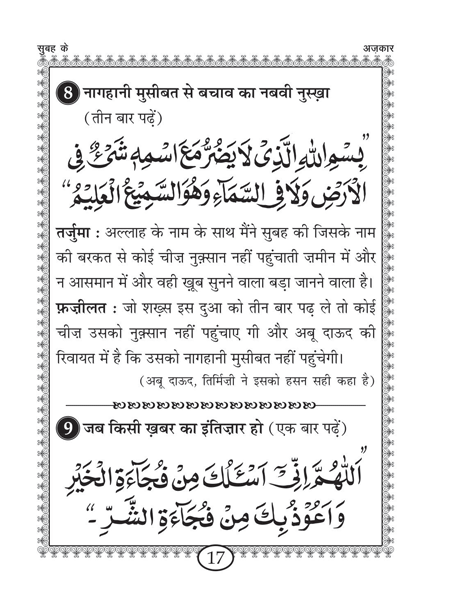 सुबह के अज़कार
8 नागहानी मुसीबत से बचाव का नबवी नुस्ख़ा
(तीन बार पढ़ें)
"بِسْمِ اللهِ الَّذِیْ لَا يَضُرُّ مَعَ اسْمِهٖ شَیْءٌ فِی
الْاَرْضِ وَلَا فِی السَّمَآءِ وَهُوَ السَّمِيْعُ الْعَلِيْمُ"
तर्जुमा : अल्लाह के नाम के साथ मैंने सुबह की जिसके नाम
की बरकत से कोई चीज़ नुक़्सान नहीं पहुंचाती ज़मीन में और
न आसमान में और वही ख़ूब सुनने वाला बड़ा जानने वाला है।
फ़ज़ीलत : जो शख़्स इस दुआ को तीन बार पढ़ ले तो कोई
चीज़ उसको नुक़्सान नहीं पहुंचाए गी और अबू दाऊद की
रिवायत में है कि उसको नागहानी मुसीबत नहीं पहुंचेगी।
(अबू दाऊद, तिर्मिज़ी ने इसको हसन सही कहा है)
9 जब किसी ख़बर का इंतिज़ार हो (एक बार पढ़ें)
"اَللّٰهُمَّ اِنِّیْٓ اَسْئَلُكَ مِنْ فُجَآءَةِ الْخَيْرِ
وَ اَعُوْذُ بِكَ مِنْ فُجَآءَةِ الشَّرِّ ۔"
17